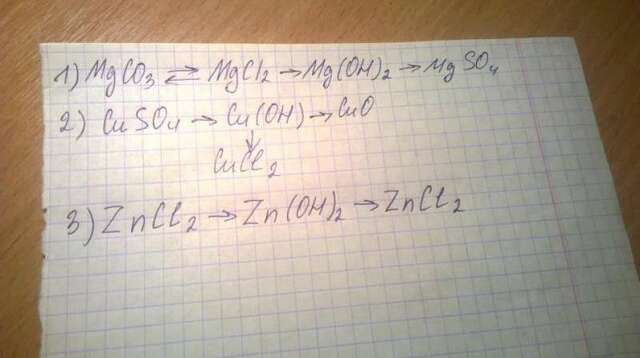 1) MgCO₃ ⇄ MgCl₂ → Mg(OH)₂ → MgSO₄
2) CuSO₄ → Cu(OH) → CuO
↓
CuCl₂
3) ZnCl₂ → Zn(OH)₂ → ZnCl₂